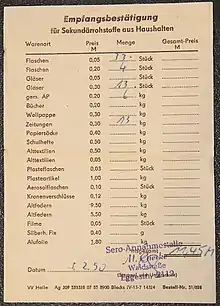 Empfangsbestätigung
für Sekundärrohstoffe aus Haushalten
Warenart Preis Menge Gesamt-Preis
M M
Flaschen 0,05 Stück
Flaschen 0,20 4 Stück
Gläser 0,05 Stück
Gläser 0,30 13 Stück
gem. AP 0,20 6 kg
Bücher 0,20 kg
Wellpappe 0,30 kg
Zeitungen 0,30 13 kg
Papiersäcke 0,40 kg
Schulhefte 0,50 kg
Alttextilien 0,50 kg
Alttextilien 0,05 kg
Plasteflaschen 0,03 Stück
Plasteartikel 1,00 kg
Aerosolflaschen 0,10 Stück
Kronenverschlüsse 0,12 kg
Altfedern 9,50 kg
Altfedern 5,50 kg
Filme 0,05 Stück
Silberh. Fix 0,40 kg
Alufolie 1,80 kg
Sero-Annahmestelle 11,45M
Waldstraße
Datum 2.90
VV Halle Ag 309